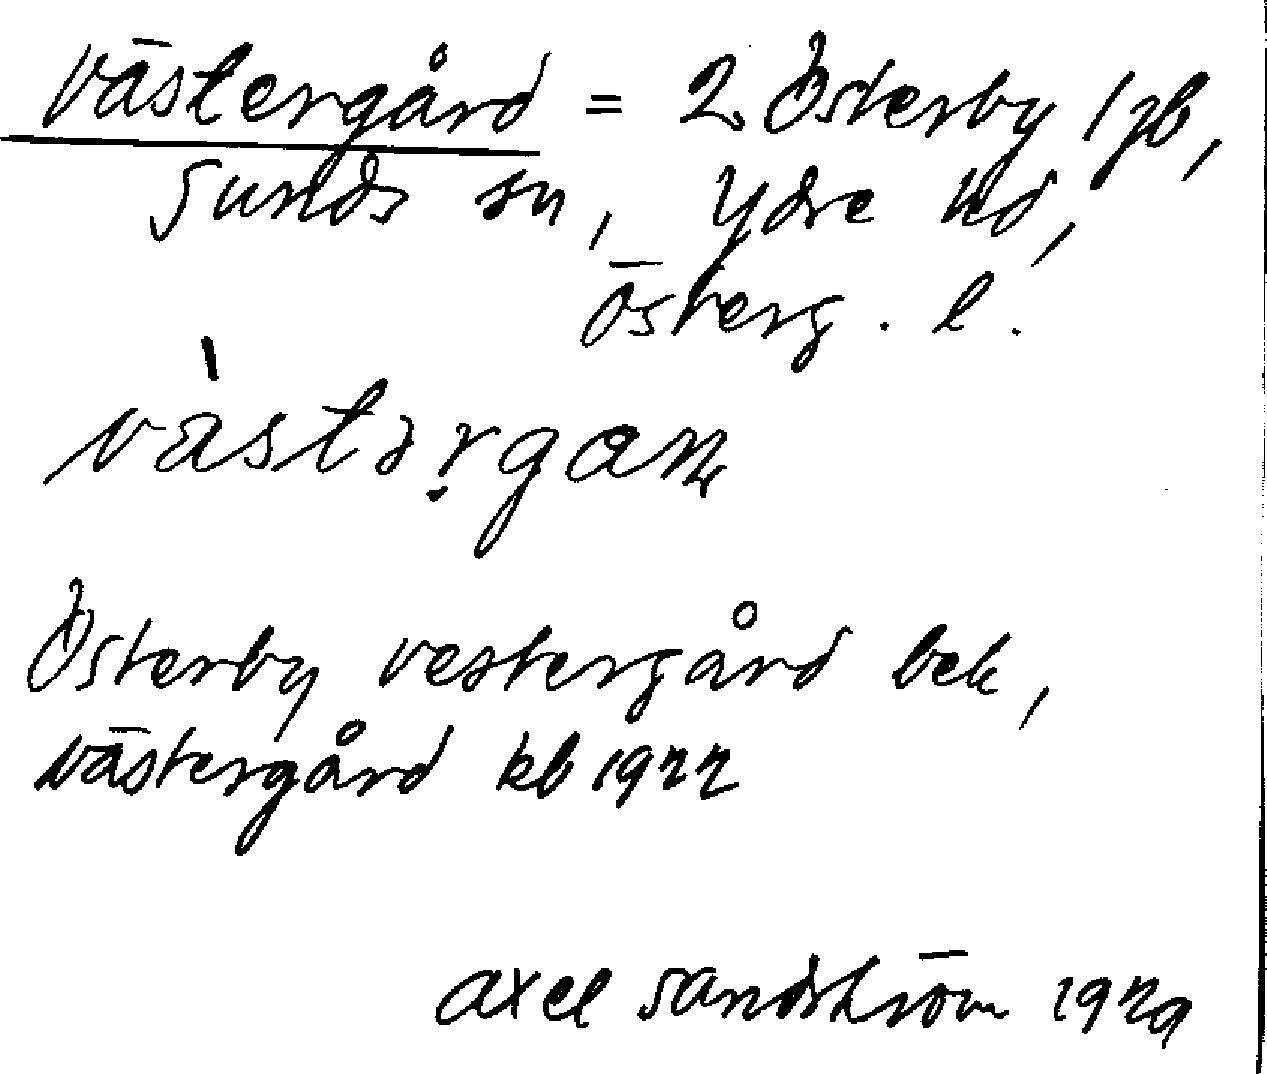 Västergård = 2 Österby 1 jb,
Sunds sn, Ydre hd,
Österg. l.
Österby vestergård bek,
Västergård kb 1922
Axel Sandström 1929